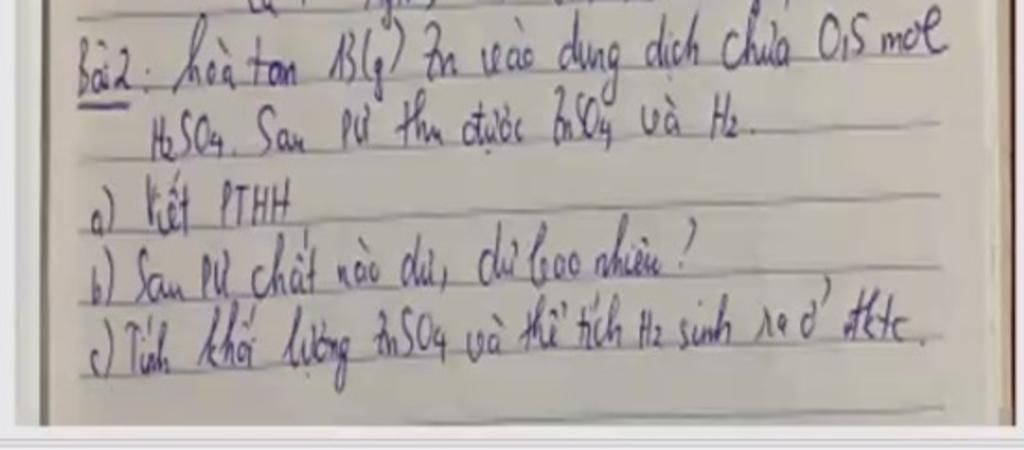 Bài 2: hoà tan 13(g) Zn vào dung dịch chứa 0,5 mol
H₂SO₄. Sau PƯ thu được ZnSO₄ và H₂.
a) Viết PTHH
b) Sau PƯ chất nào dư, dư bao nhiêu?
c) Tính khối lượng ZnSO₄ và thể tích H₂ sinh ra ở đktc.